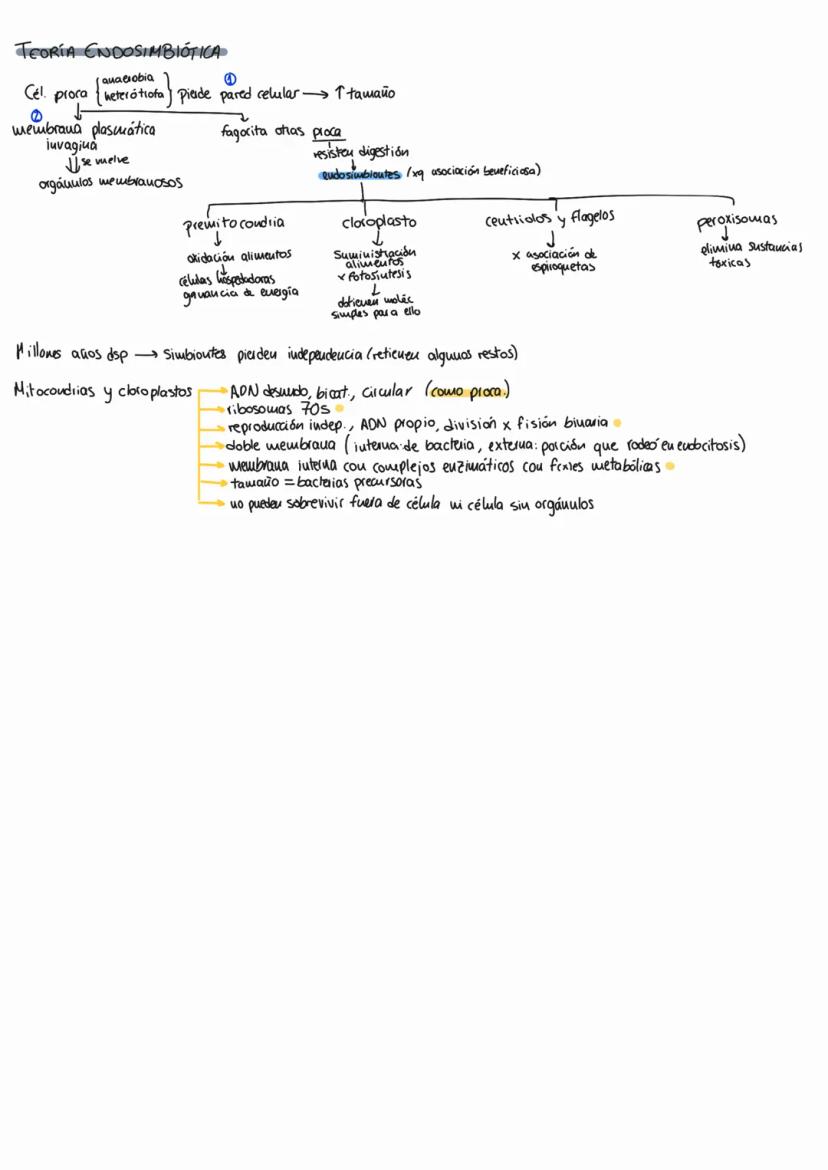 TEORÍA ENDOSIMBIÓTICA
Cél. proca {anaerobia heterótrofa} ① pierde pared celular → ↑ tamaño
② membrana plasmática invagina
⇓ se vuelve
orgánulos membranosos
fagocita otras proca
resisten digestión
endosimbiontes (xq asociación beneficiosa)
premitocondria
oxidación alimentos
células hospedadoras
ganancia de energía
cloroplasto
suministración
alimentos
x fotosíntesis
obtienen moléc
simples para ello
centriolos y flagelos
x asociación de
espiroquetas
peroxisomas
elimina sustancias
tóxicas
Millones años dsp → simbiontes pierden independencia (retienen algunos restos)
Mitocondrias y cloroplastos → ADN desnudo, bicat., circular (como proca.)
→ ribosomas 70s
→ reproducción indep., ADN propio, división x fisión binaria
→ doble membrana (interna: de bacteria, externa: porción que rodeó en endocitosis)
→ membrana interna con complejos enzimáticos con fcxnes metabólicas
→ tamaño = bacterias precursoras
→ no pueden sobrevivir fuera de célula ni célula sin orgánulos